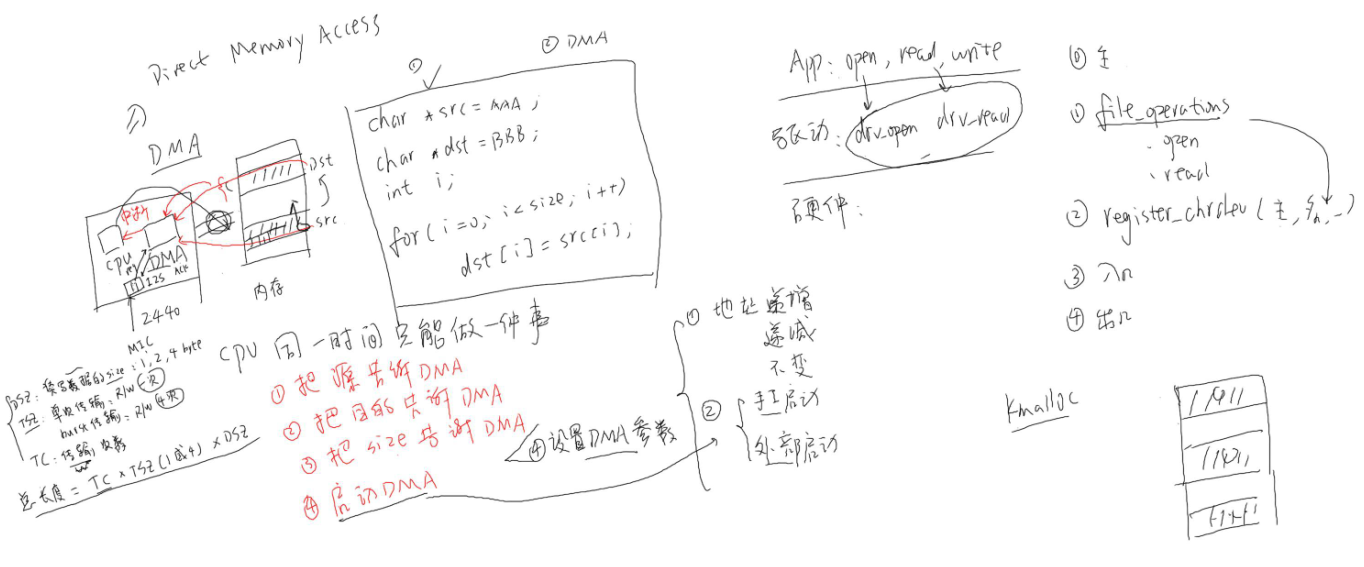 Direct Memory Access
DMA
中断
CPU
DMA
IIS
ACK
2440
MIC
内存
Dst
src
① ② DMA
char *src = AAA;
char *dst = BBB;
int i;
for(i=0; i<size; i++)
dst[i] = src[i];
CPU 同一时间只能做一件事
① 把源告诉DMA
② 把目的告诉DMA
③ 把size告诉DMA
④ 设置DMA参数
④ 启动DMA
DSZ: 读写数据的size: 1, 2, 4 byte
TSZ: 单次传输: R/W 一次
burst传输: R/W 4次
TC: 传输次数
总长度 = TC × TSZ(1或4) × DSZ
① 地址递增
递减
不变
② 手工启动
外部启动
App: open, read, write
驱动: drv_open drv_read
硬件:
⓪ 主
① file_operations
. open
. read
② register_chrdev (主,
③ 入口
④ 出口
kmalloc